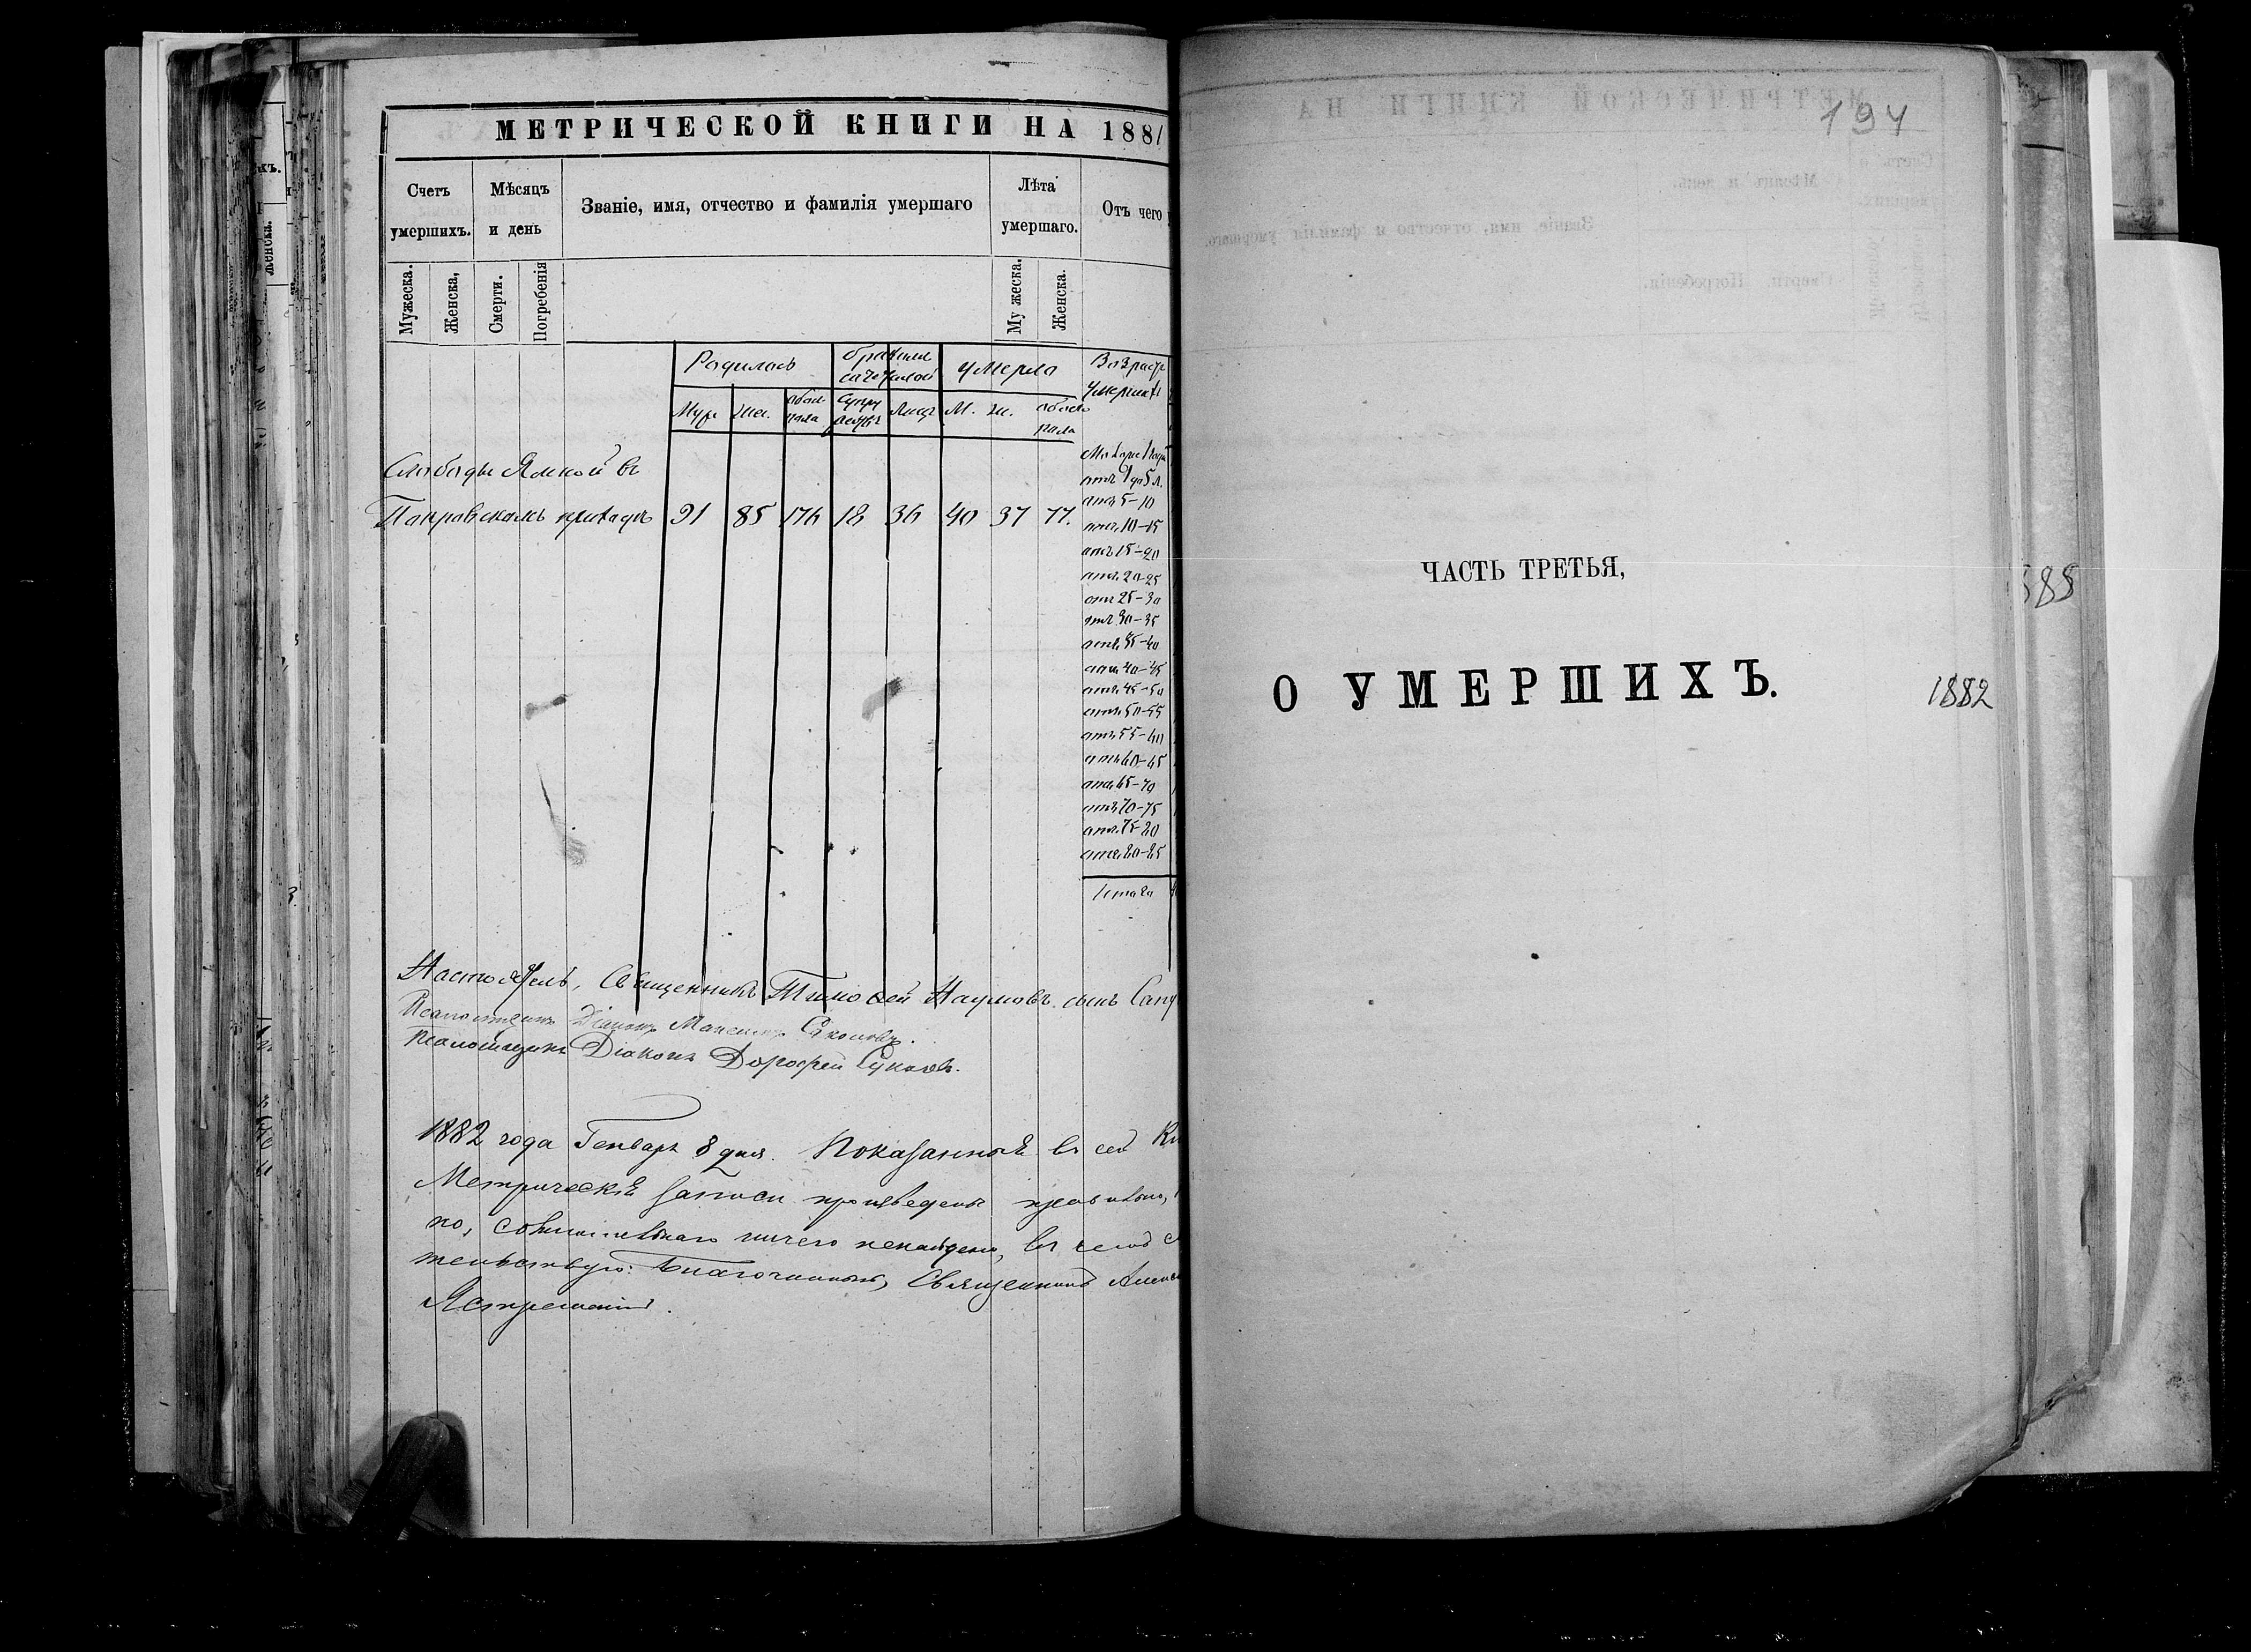 МЕТРИЧЕСКОЙ КНИГИ НА 1881
Счетъ умершихъ.
Мѣсяцъ и день
Званіе, имя, отчество и фамилія умершаго
Лѣта умершаго.
Отъ чего
Мужеска.
Женска,
Смерти.
Погребенія
Му жеска.
Женска.
Родилось
Умерло
Возрастъ умершихъ
Муж Жен. обоего пола
Лицъ М. ж. обоего пола
Слободы Ямской въ
Покровскомъ приходѣ 91 85 176 18 36 40 37 77.
отъ 1 до 5 л.
отъ 5-10
отъ 10-15
отъ 15-20
отъ 20-25
отъ 25-30
отъ 30-35
отъ 35-40
отъ 40-45
отъ 45-50
отъ 50-55
отъ 55-60
отъ 60-65
отъ 65-70
отъ 70-75
отъ 75-80
отъ 80-85
Итого
Настоятель, Священникъ Тимофей Наумовъ сынъ
Псаломщикъ Діаконъ
Псаломщикъ Діаконъ Дорофей
1882 года Генваря 8 дня. Показанныя въ сей
Метрическія записи произведены правильно,
но, сомнительнаго ничего ненайдено, въ семъ
тельствую: Благочинный, Священникъ
194
ЧАСТЬ ТРЕТЬЯ,
О УМЕРШИХЪ.
1882